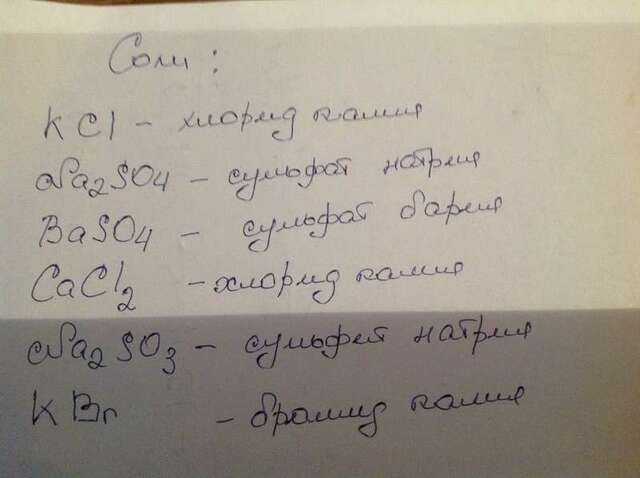 Соли:
KCl - хлорид калия
Na2SO4 - сульфат натрия
BaSO4 - сульфат бария
CaCl2 - хлорид калия
Na2SO3 - сульфит натрия
KBr - бромид калия